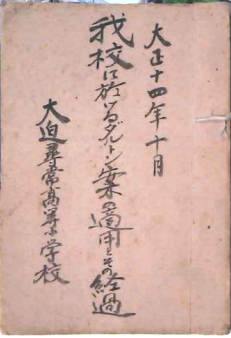 大正十四年十月
我校に於けるダルトン案の適用とその経過
大迫尋常高等小学校